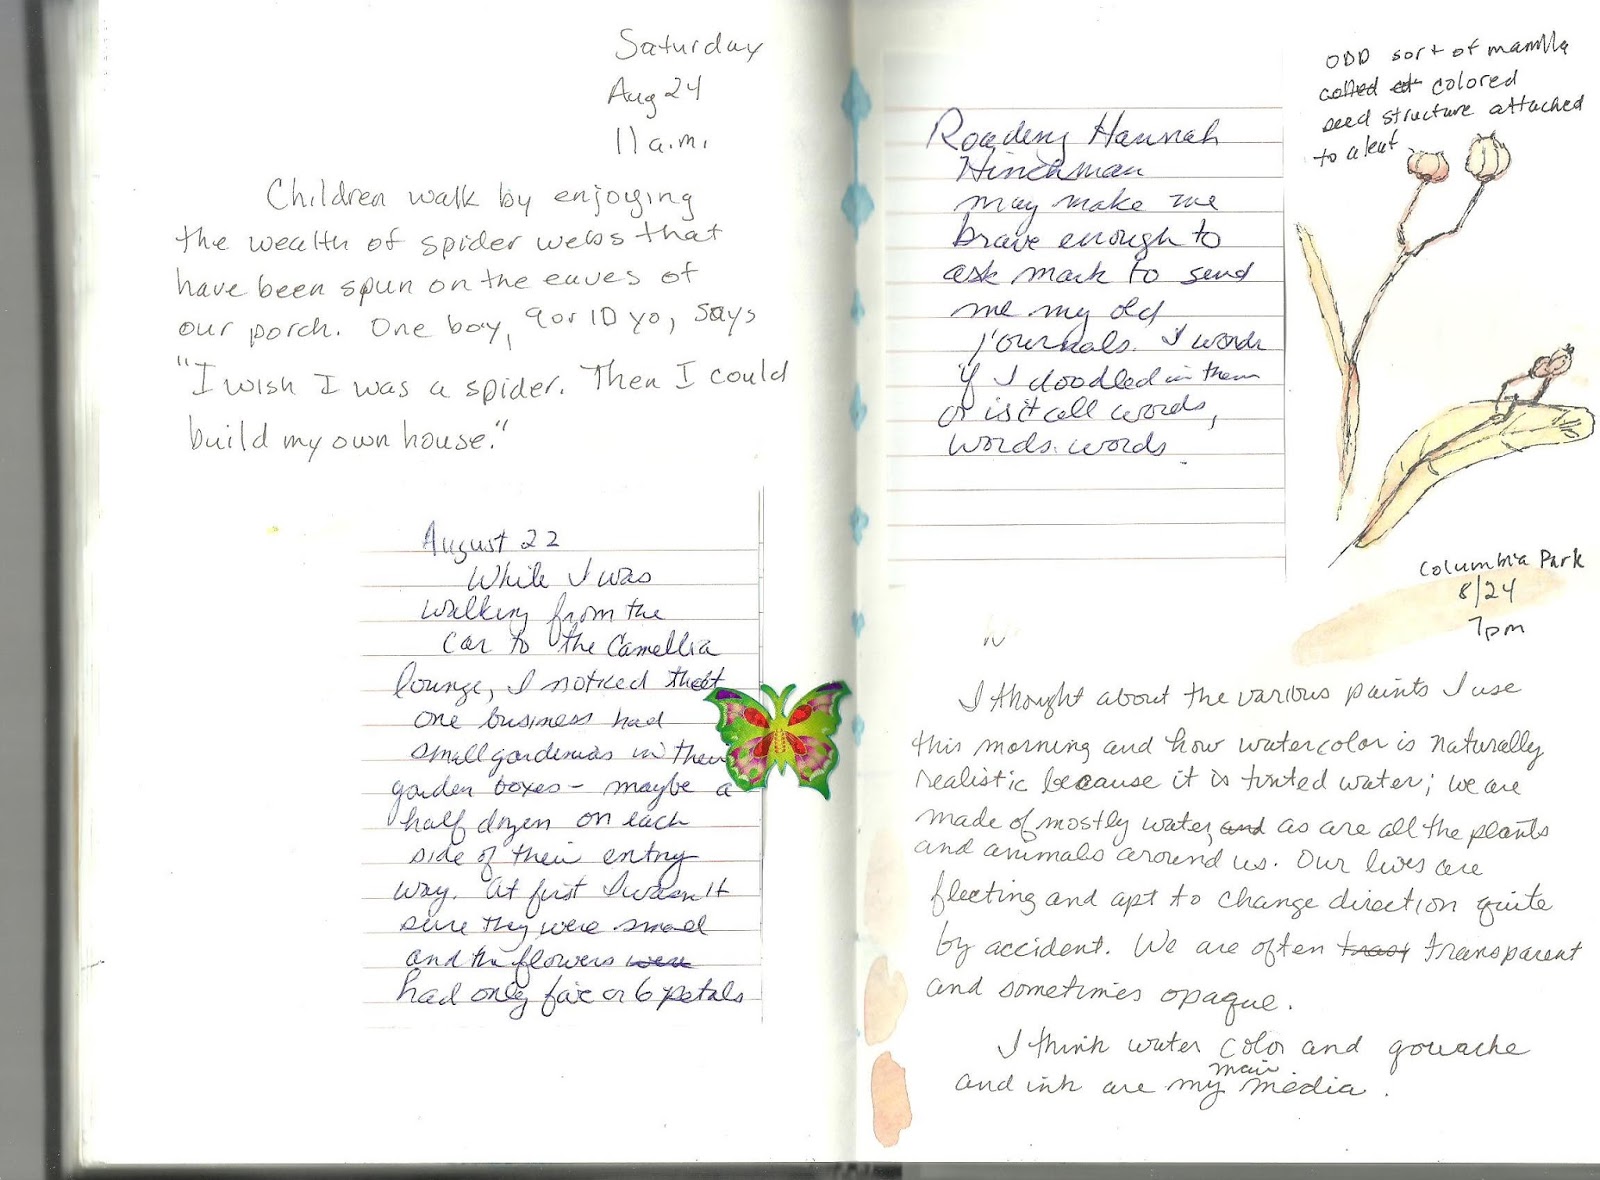 Saturday
Aug 24
11 a.m.
Children walk by enjoying
the wealth of spider webs that
have been spun on the eaves of
our porch. One boy, 9 or 10 yo, says
"I wish I was a spider. Then I could
build my own house."
August 22
While I was
walking from the
car to the Camellia
lounge, I noticed that
one business had
small gardenias in their
garden boxes - maybe a
half dozen on each
side of their entry
way. At first I wasn't
sure they were small
and the flowers were
had only five or 6 petals
Reading Hannah
Hinchman
may make me
brave enough to
ask mark to send
me my old
journals. I wonder
if I doodled in them
or is it all words,
words. words.
ODD sort of manilla
colored
seed structure attached
to a leaf
Columbia Park
8/24
7pm
I thought about the various paints I use
this morning and how watercolor is naturally
realistic because it is tinted water; we are
made of mostly water, and as are all the plants
and animals around us. Our lives are
fleeting and apt to change direction quite
by accident. We are often transparent
and sometimes opaque.
I think water color and gouache
and ink are my main media.